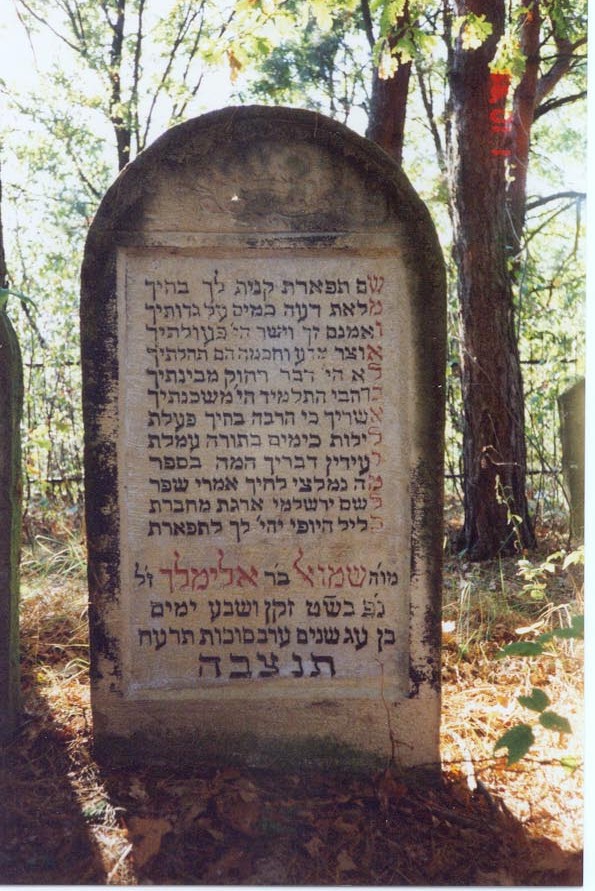 שם תפארת קנית לך בחיך
מלאת דעה כמים על גדותיך
ואמנם זך וישר הי׳ פעולתיך
אוצר מדע וחכמה הם תהלתיך
לא הי׳ דבר רחוק מבינתיך
רחבי התלמיד הי׳ משכנתיך
אשריך כי הרבה בחיך פעלת
לילות כימים בתורה עמלת
עידין דבריך המה בספר
מה נמלצי לחיך אמרי שפר
שם ירשלמי ארגת מחברת
כליל היופי יהי׳ לך לתפארת
מו״ה שמואל ב״ר אלימלך ז״ל
נ״פ בש״ט זקן ושבע ימים
בן ע״ג שנים ערב סוכות תרע״ח
תנצבה